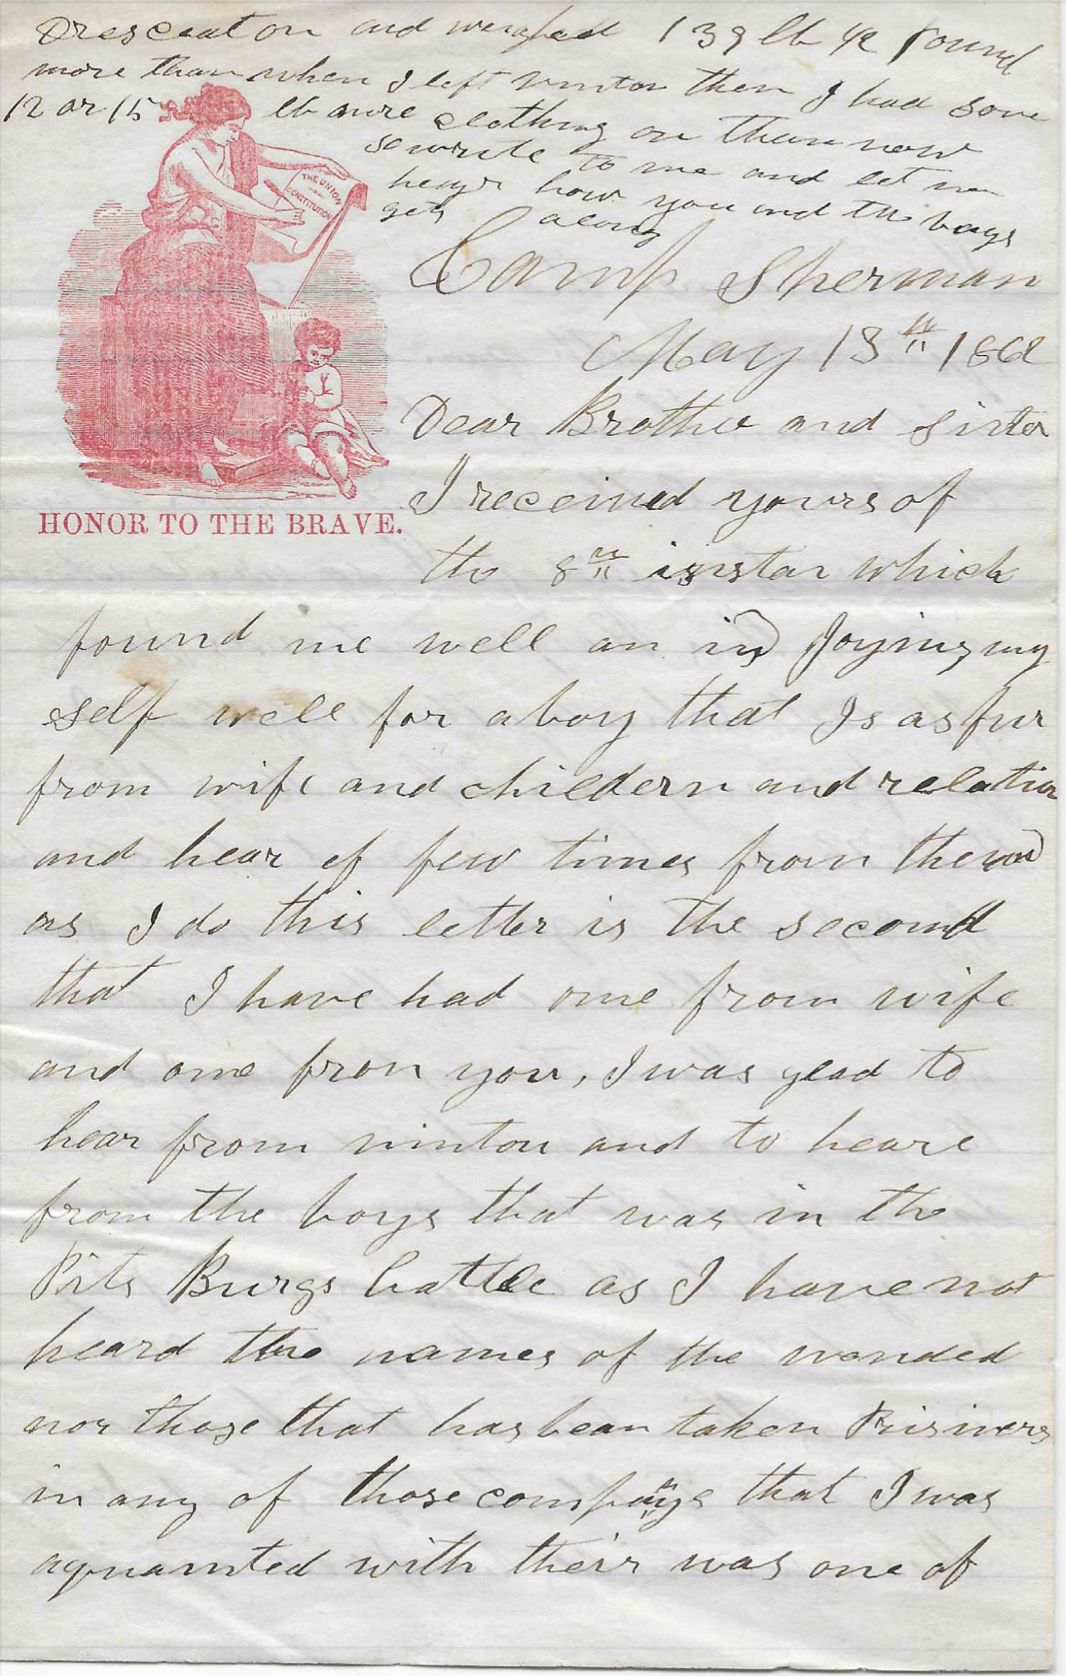 Dres coat on and weighed 139 lb 1/2 pound
more than when I left vinton then I had some
12 or 15 lb more clothing on than now
so write to me and let me
hear how you and the boys
gets along
THE UNION
CONSTITUTION
HONOR TO THE BRAVE.
Camp Sherman
May 13th 1862
Dear Brother and sister
I received yours of
the 8th instan which
found me well an in Joying my
self well for a boy that Is as fur
from wife and childern and relation
and hear ef few times from them
as I do this letter is the second
that I have had one from wife
and one fron you, I was glad to
hear from vinton and to heare
from the boys that was in the
Pits Burgs battle as I have not
heard the names of the wonded
nor those that has bean taken Prisiners
in any of those compays that I was
aquainted with their was one of